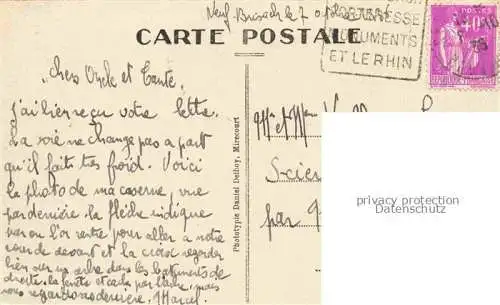 Neuf-Brisach le 7
CARTE POSTALE
FORTERESSE
MONUMENTS
ET LE RHIN
POSTES
40c
Chers Oncle et Tante,
J'ai bien reçu votre lettre.
La vie ne change pas a part
qu'il fait très froid. Voici
la photo de ma caserne, vue
par derrière. la flèche indique
par ou l'on rentre pour aller a notre
cour de devant et la croix
bien sur
droite, la fenêtre cachée par l'arbre, mais
nous regardons derrière. Marcel
Phototypie Daniel Delboy, Mirecourt
Mr et Mme V
Scier
par
privacy protection
Datenschutz